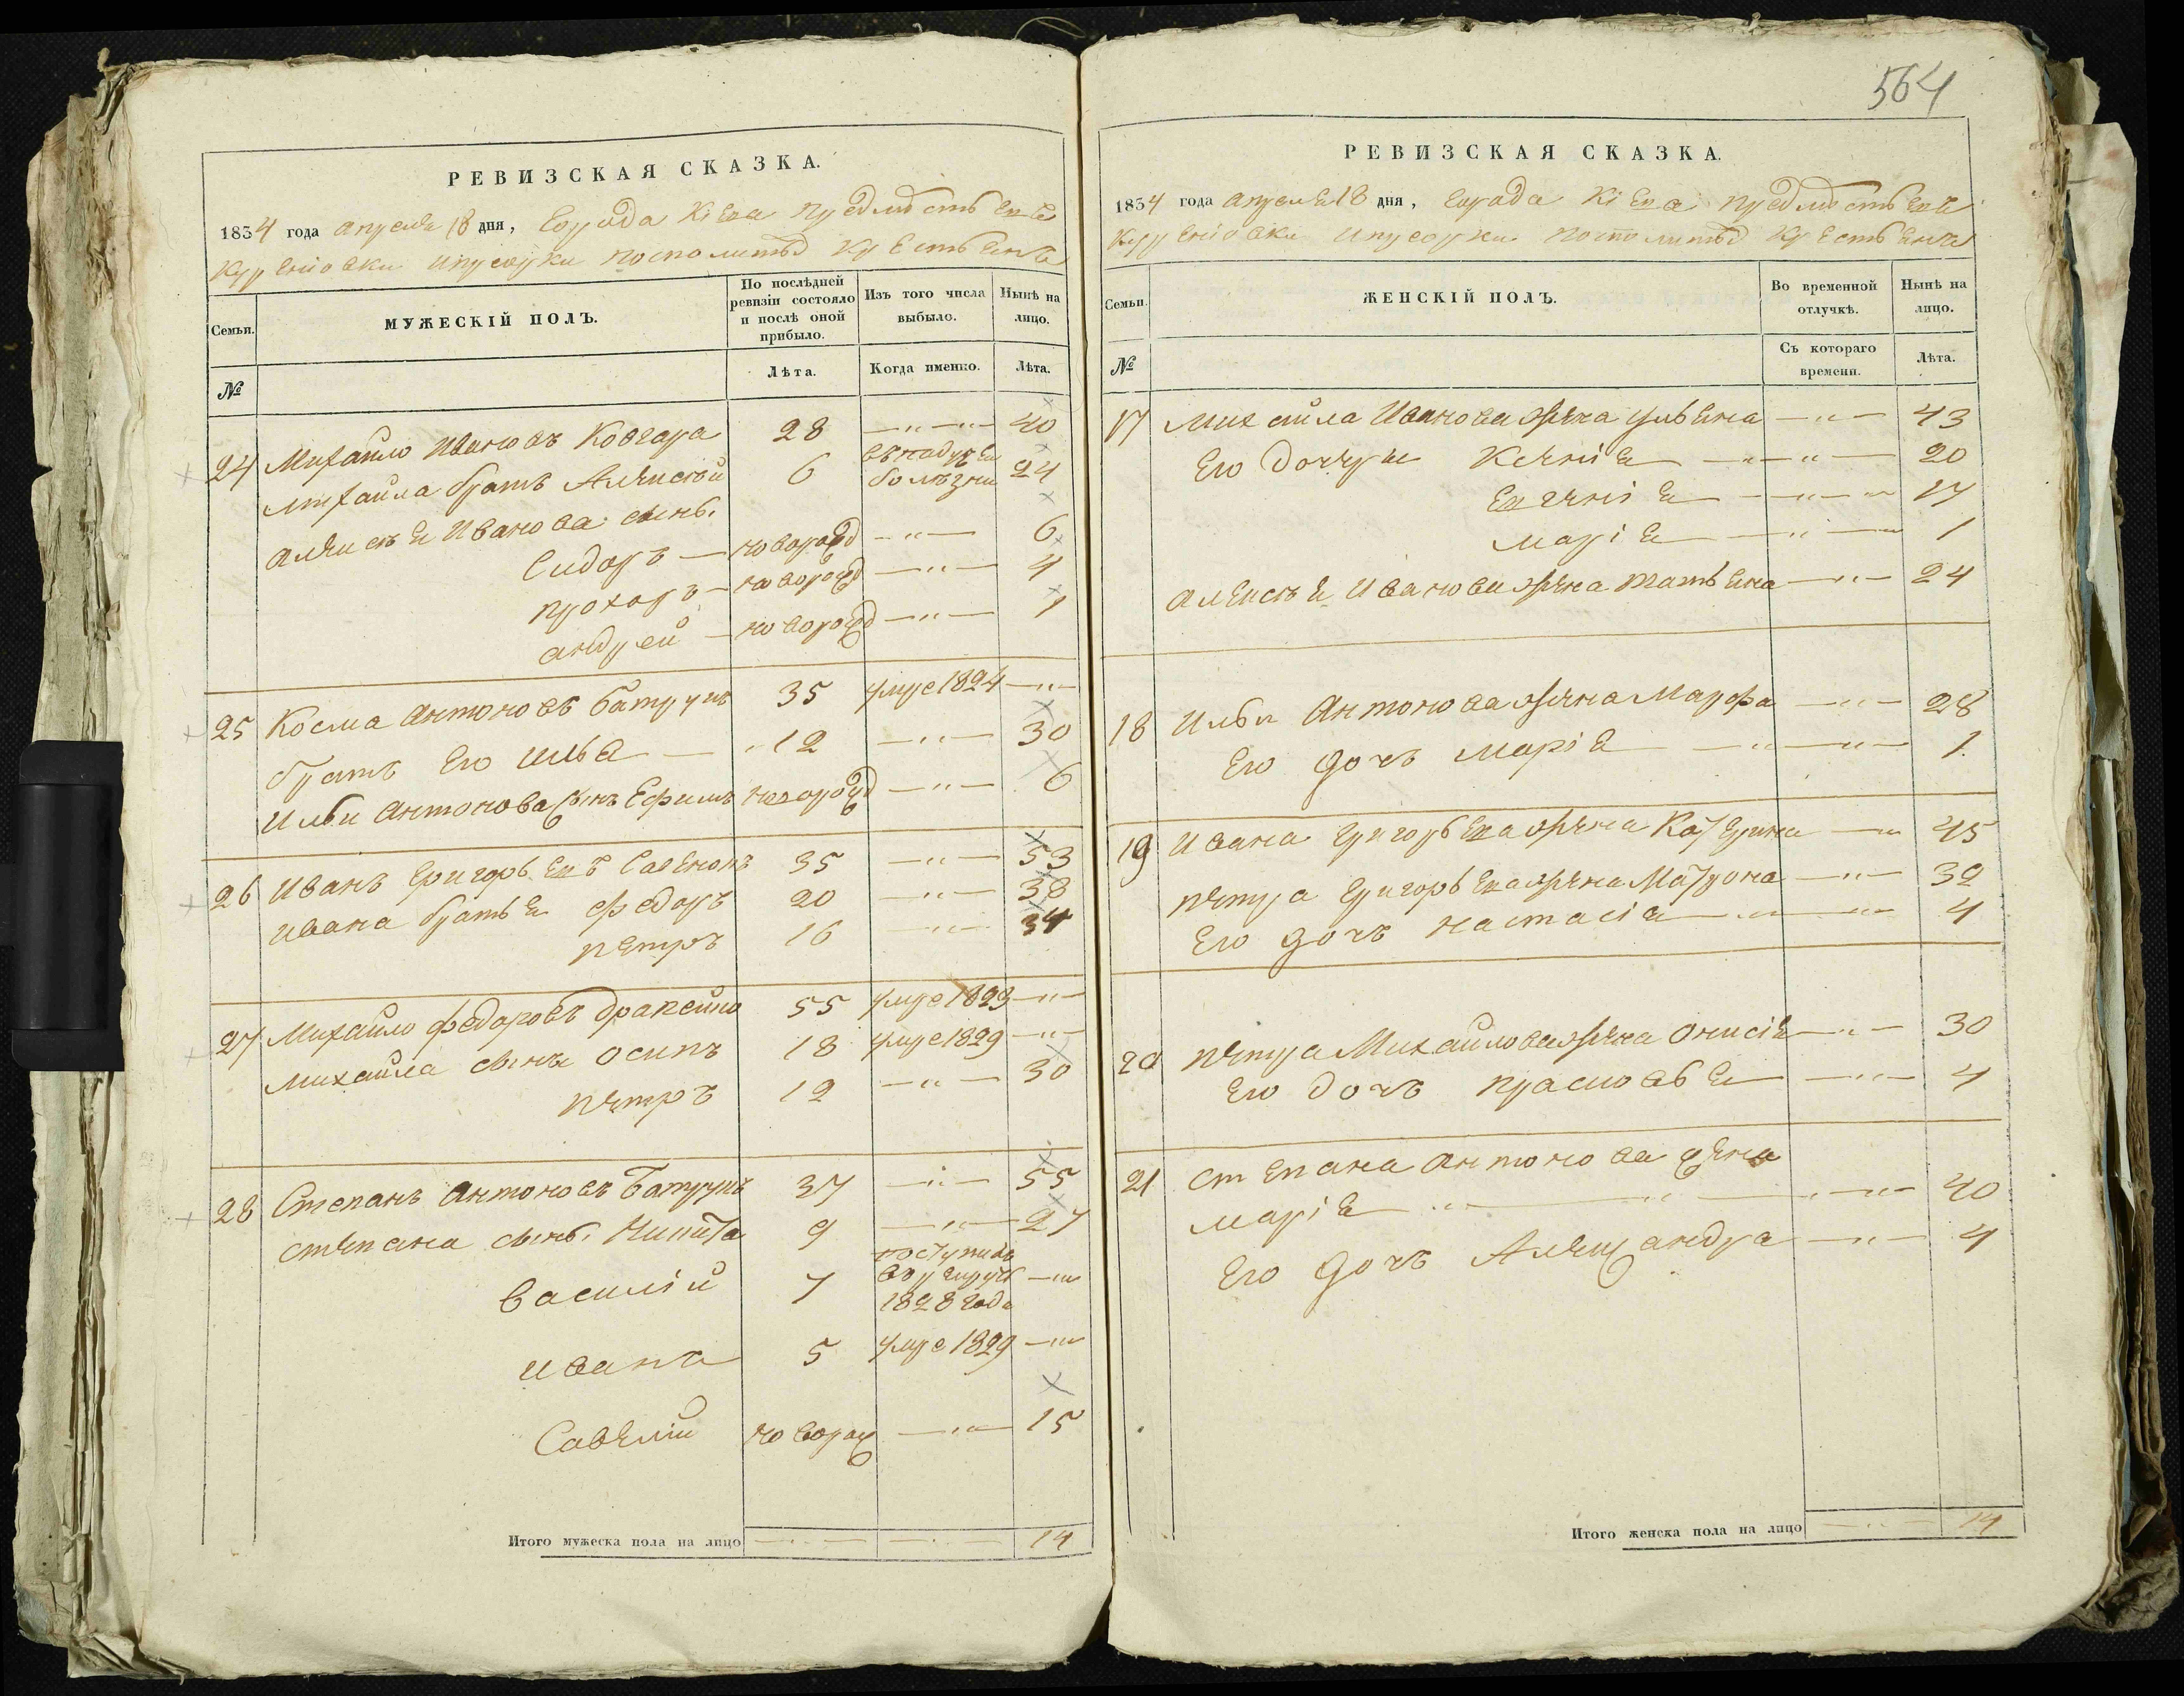 564
РЕВИЗСКАЯ СКАЗКА.
1834 года апреля 18 дня, города Кіева предмѣстьевъ
Куреніовки и приорки посполитыхъ крестьянъ
Семьи.
МУЖЕСКІЙ ПОЛЪ.
По послѣдней ревизіи состояло и послѣ оной прибыло.
Изъ того числа выбыло.
Нынѣ на лицо.
№
Лѣта.
Когда именно.
Лѣта.
24 Михайло Ивановъ 28 —„—„— 40
Михайла братъ Алексѣй 6 въ падучей болѣзни 24
Алексѣя Иванова сынъ.
Сидоръ — новорожд —„— 6
Прохоръ — новорожд —„— 4
Андрей — новорожд —„— 1
25 Косма Антоновъ Батрукъ 35 умре 1824 —„—
братъ его Илья — 12 —„— 30
Ильи Антонова сынъ Ефимъ новорожд —„— 6
26 Иванъ Григорьевъ Савенокъ 35 —„— 53
Ивана братья Федоръ 20 —„— 38
Петръ 16 —„— 34
27 Михайло Федоровъ 55 умре 1823 —„—
Михайла сынъ Осипъ 18 умре 1829 —„—
Петръ 12 —„— 30
28 Степанъ Антоновъ Батрукъ 37 —„— 55
Степана сынъ. Никита 9 —„— 27
Василій 7 поступилъ въ рекруты 1828 года —„
Иванъ 5 умре 1829 —„
Савелій новорож —„— 15
Итого мужеска пола на лицо —„— —„— 14
РЕВИЗСКАЯ СКАЗКА.
1834 года апреля 18 дня, города Кіева предмѣстьевъ
Куреніовки и приорки посполитыхъ крестьянъ
Семьи.
ЖЕНСКІЙ ПОЛЪ.
Во временной отлучкѣ.
Нынѣ на лицо.
№
Съ котораго времени.
Лѣта.
17 Михайла Иванова жена Ульяна —„— 43
Его дочери Ксенія —„— 20
Евгенія —„— 17
Марія —„— 1
Алексѣя Иванова жена Татьяна —„— 24
18 Ильи Антонова жена Марфа —„— 28
Его дочь Марія —„— 1.
19 Ивана Григорьева жена Катерина —„ 45
Петра Григорьева жена Матрона —„— 32
Его дочь Настасія —„— 4
20 Петра Михайлова жена Онисія —„— 30
Его дочь Прасковья —„— 4
21 Степана Антонова жена
Марія —„— 40
Его дочь Александра —„— 4
Итого женска пола на лицо —„— 14